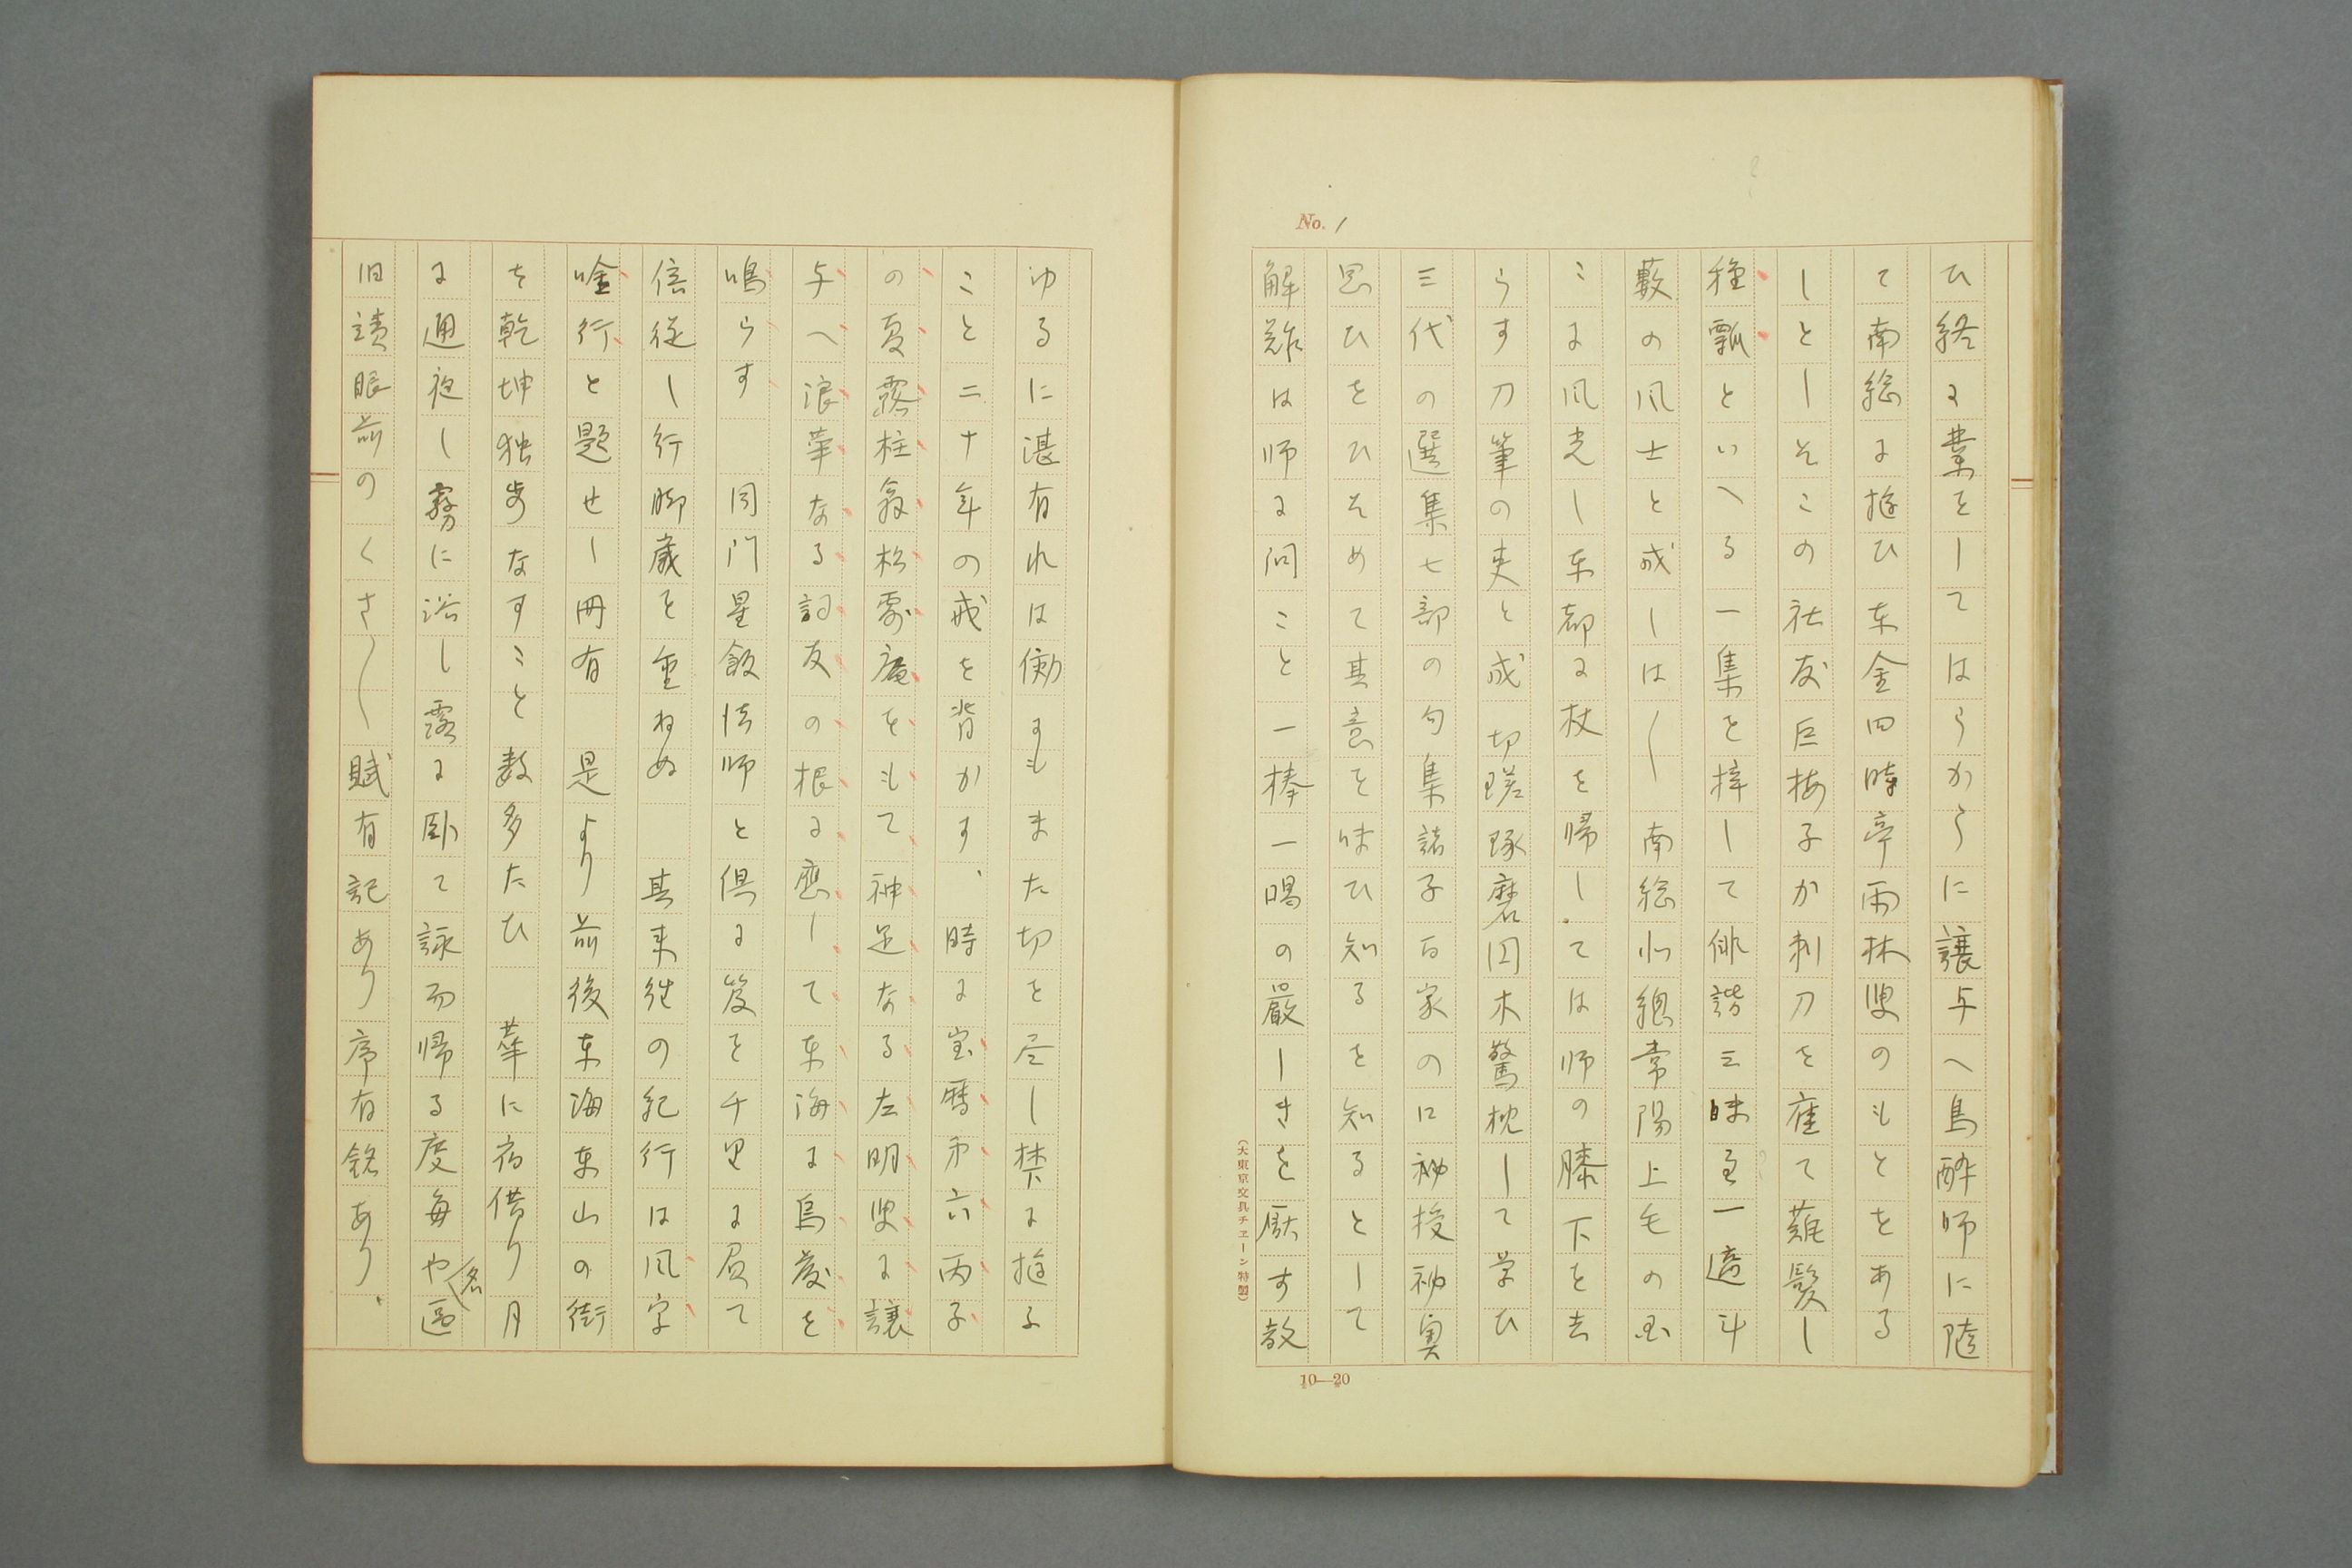 No. 1
ひ終に業をしてはうかうに譲与へ鳥酔師に随
て南総に遊ひ东金四時亭雨林叟のもとをある
しとしそこの社友巨梅子か剃刀を雇て薙髪し
種瓢といへる一集を梓して俳諧三昧至一遊斗
藪の风士と成しは〱南総北総常陽上毛の国
こに风光し东都に杖を帰しては师の膝下を去
らす刀筆の吏と成切瑳琢磨囚木驚枕して学ひ
三代の選集七部の句集諸子百家の口袖授袖奥
思ひをひそめて其意を味ひ知るを知るとして
解難は师に问こと一棒一喝の嚴しきを厭す教
(大東京文具チェーン特製)
10—20
ゆるに湛有れは働もまた切を尽し禁に遊ふ
こと二十年の戒を背かす、時に宝暦第六丙子
の夏露柱翁松露庵をもて神足なる左明叟に譲
与へ浪華なる詞友の招に應して东海に鳥葊を
鳴らす 同门星飯法师と倶に笈を千里に負て
信従し行脚歳を重ねぬ 其来徃の紀行は风字
唫行と題せし冊有 是より前後東海東山の街
を乾坤独歩なすこと数多たひ 華に宿借り月
に通夜し霧に浴し露に臥て詠而帰る度毎や區
名
旧蹟眼前のくさ〱賦有記あり序有銘あり、